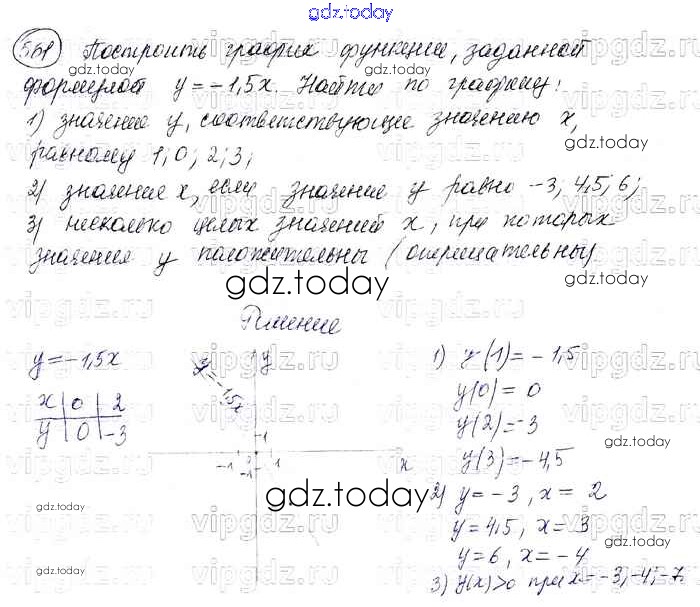 gdz.today
561 Построить график функции, заданной
формулой y = -1,5x. Найти по графику:
1) значение y, соответствующее значению x,
равному 1; 0; 2; 3;
2) значение x, если значение y равно -3; 4,5; 6;
3) несколько целых значений x, при которых
значения y положительны (отрицательны)
Решение
y = -1,5x
x 0 2
y 0 -3
y = -1,5x
y
1
-1 1
-1
x
1) y(1) = -1,5
y(0) = 0
y(2) = -3
y(3) = -4,5
2) y = -3, x = 2
y = 4,5, x = 3
y = 6, x = -4
3) y(x)>0 при x = -3, -4, -7
gdz.today
gdz.today
gdz.today
gdz.today
gdz.today
gdz.today
gdz.today
gdz.today
gdz.today
vipgdz.ru